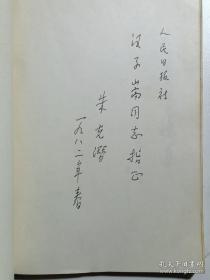 人民日报社
汪子嵩同志指正
朱光潜
一九八二年春
孔夫子旧书网